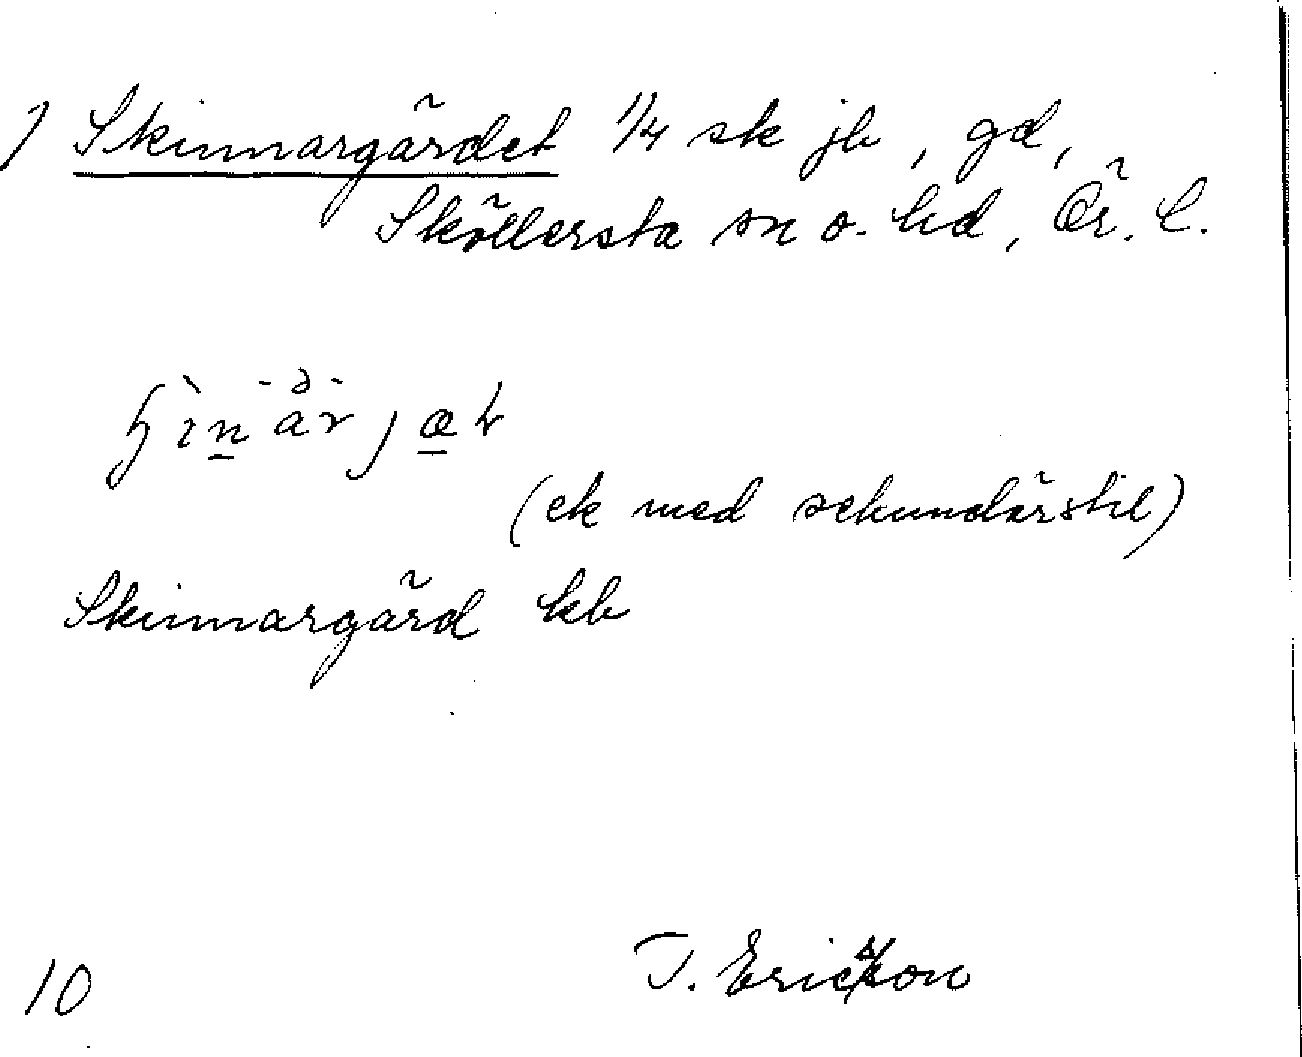 ) Skinnargärdet 1/4 sk jb, gd,
Sköllersta sn o. hd, Ör. l.
(ek med sekundärstil)
Skinnargärd kb
10 J. Ericsson